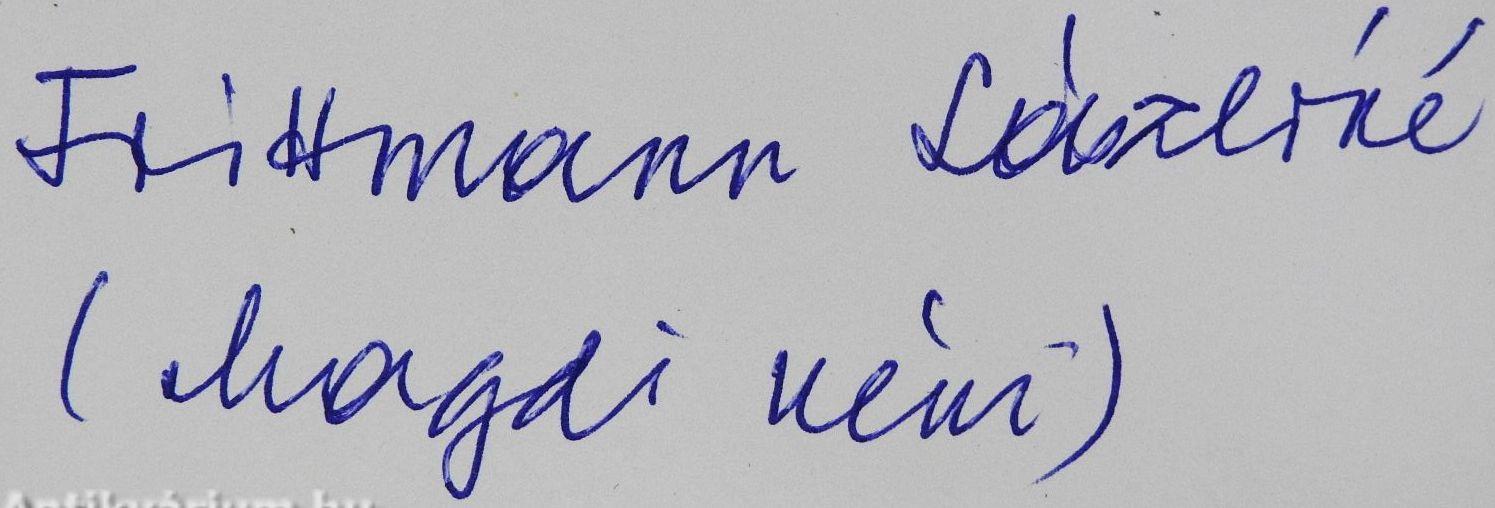 Frittmann Lászlóné
(Magdi néni)
Antikvárium.hu